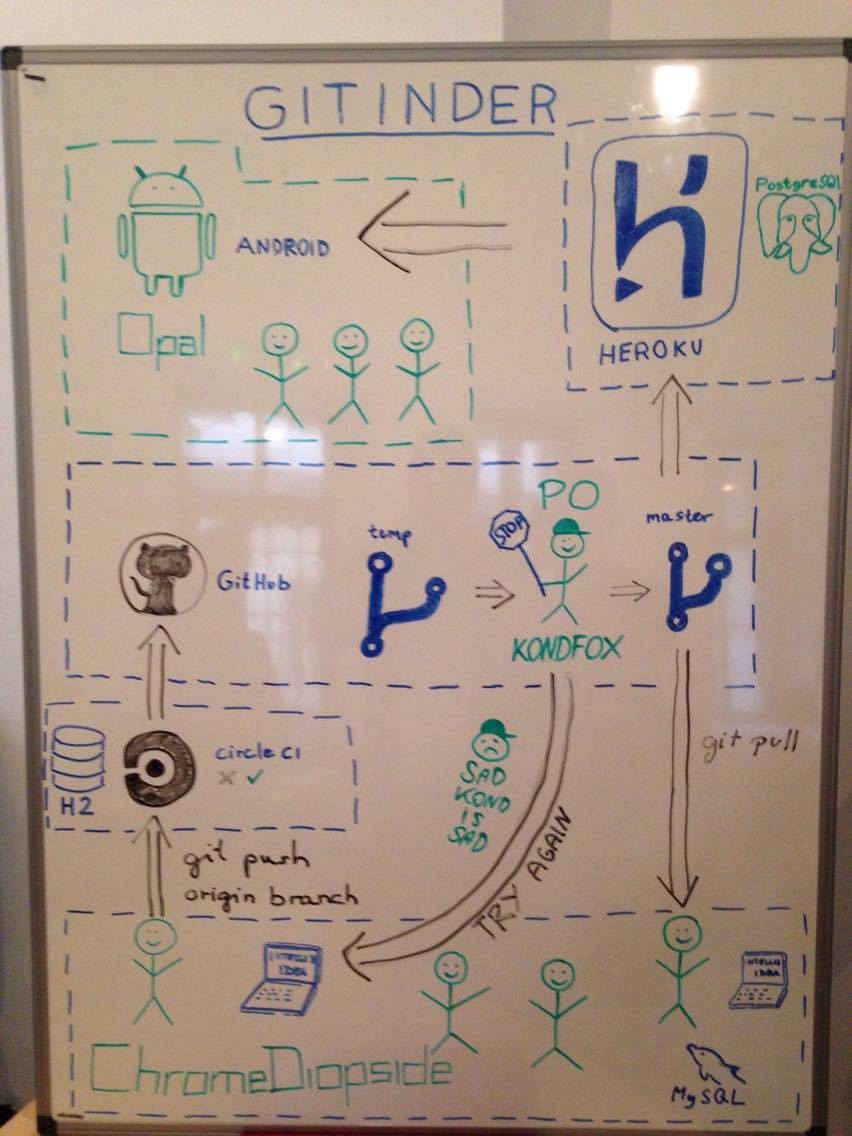 GITINDER
PostgreSQL
ANDROID
Opal
HEROKU
PO
temp
STOP
master
GitHub
KONDFOX
circle CI
H2
SAD
KOND
IS
SAD
git pull
TRY AGAIN
git push
origin branch
INTELLIJ
IDEA
INTELLIJ
IDEA
ChromeDiopside
MySQL